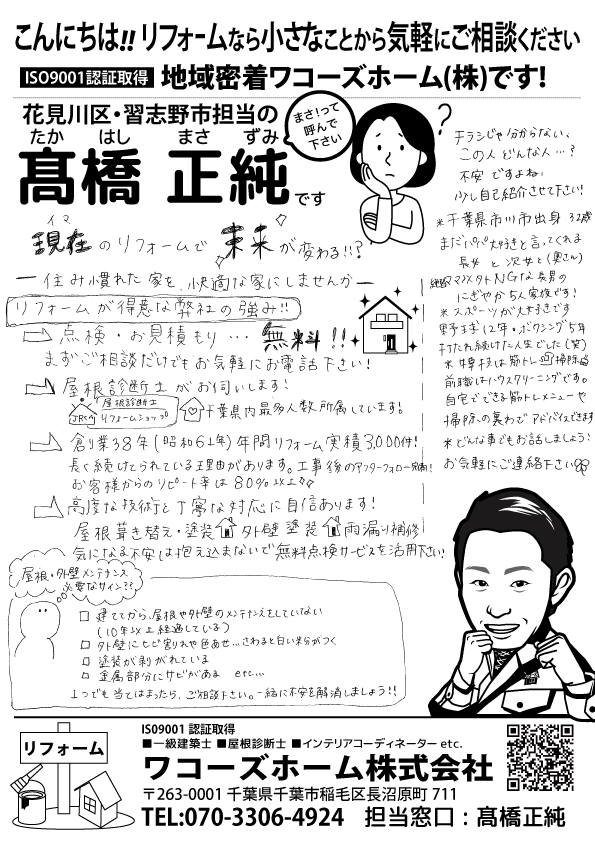 こんにちは!! リフォームなら小さなことから気軽にご相談ください
ISO9001認証取得 地域密着ワコーズホーム(株)です!
花見川区・習志野市担当の
たか はし まさ ずみ
髙橋 正純です
まさ!って
呼んで
下さい
?
チラシじゃ分からない、
この人どんな人…?
不安ですよね。
少し自己紹介させて下さい!
*千葉県市川市出身 32歳
まだパパ大好きと言ってくれる
長女と次女と(奥さん)
絶叫マシンタトNGな長男の
にぎやか5人家族です!
*スポーツが大好きです
野球12年・ボクシング5年
打たれ続けた人生でした(笑)
*特技は筋トレ 掃除
前職はハウスクリーニングです。
自宅でできる筋トレメニューや
掃除の裏ワザアドバイスできます
*どんな事でもお話しましょう!
お気軽にご連絡下さい
イマ
現在のリフォームで未来が変わる!!?
一住み慣れた家を、快適な家にしませんか一
リフォームが得意な弊社の強み!!
点検・お見積もり…無料!!
まずご相談だけでもお気軽にお電話下さい!
屋根診断士がお伺いします!
JRCA 屋根診断士
リフォームショップ
千葉県内最多人数所属しています!
創業38年(昭和61年)年間リフォーム実績3,000件!
長く続けてられている理由があります。工事後のアフターフォロー
お客様からのリピート率は80%以上
高度な技術と丁寧な対応に自信あります!
屋根葺き替え・塗装 外壁塗装 雨漏り補修
気になる不安は抱え込まないで無料点検サービスを活用下さい!
屋根・外壁メンテナンス
必要なサイン??
□ 建ててから、屋根や外壁のメンテナンスをしていない
(10年以上経過している)
□ 外壁にヒビ割れや色あせ…さわると白い粉がつく
□ 塗装が剥がれている
□ 金属部分にサビがある etc…
1つでも当てはまったら、ご相談下さい。一緒に不安を解消しましょう!!
リフォーム
ISO9001 認証取得
■一級建築士 ■屋根診断士 ■インテリアコーディネーター etc.
ワコーズホーム株式会社
〒263-0001 千葉県千葉市稲毛区長沼原町 711
TEL:070-3306-4924 担当窓口:髙橋正純